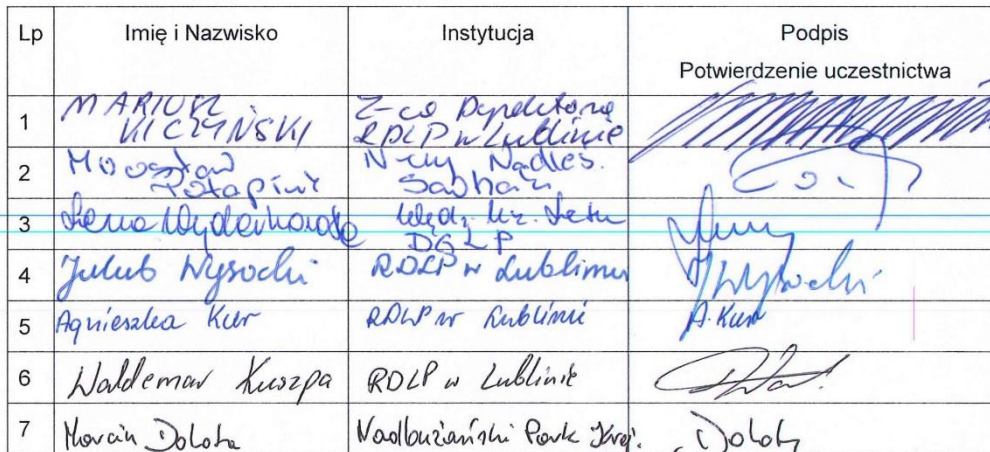 Lp Imię i Nazwisko Instytucja Podpis
Potwierdzenie uczestnictwa
1 MARIUSZ KICZYŃSKI Z-ca Dyrektora RDLP w Lublinie
2 Potapiuk N-czy Nadleś.
3 DGLP
4 Jakub Wysocki RDLP w Lublinie JWysocki
5 Agnieszka Kur RDLP w Lublinie A. Kur
6 Waldemar Kuszpa RDLP w Lublinie
7 Marcin Dołota Nadbużański Park Kraj.